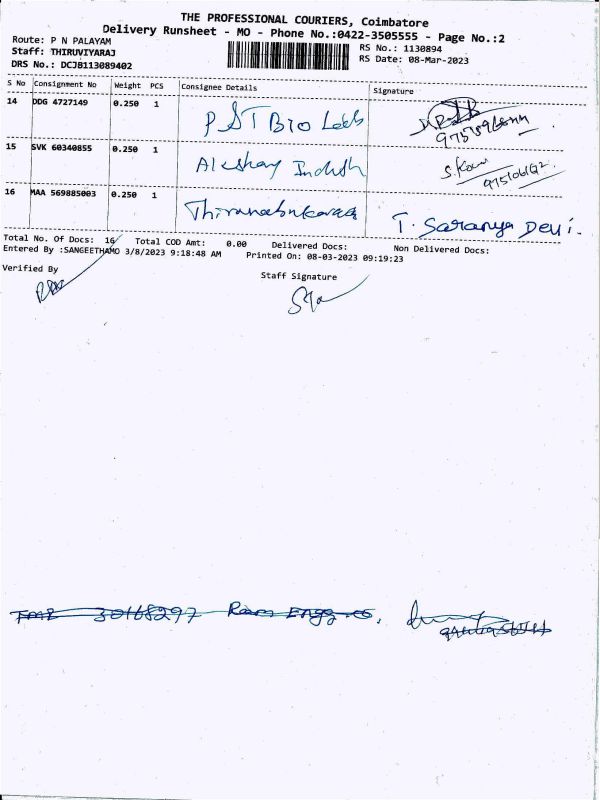 THE PROFESSIONAL COURIERS, Coimbatore
Delivery Runsheet - MO - Phone No.:0422-3505555 - Page No.:2
Route: P N PALAYAM
Staff: THIRUVIYARAJ
DRS No.: DCJB113089402
RS No.: 1130894
RS Date: 08-Mar-2023
S No Consignment No Weight PCS Consignee Details Signature
14 DDG 4727149 0.250 1 PST Bio Labs
15 SVK 60340855 0.250 1 Akshay S.Kou
16 MAA 569885003 0.250 1 T. Saranya Devi.
Total No. Of Docs: 16 Total COD Amt: 0.00 Delivered Docs: Non Delivered Docs:
Entered By :SANGEETHAMO 3/8/2023 9:18:48 AM Printed On: 08-03-2023 09:19:23
Verified By Staff Signature
30168297 Ram Engg. co,